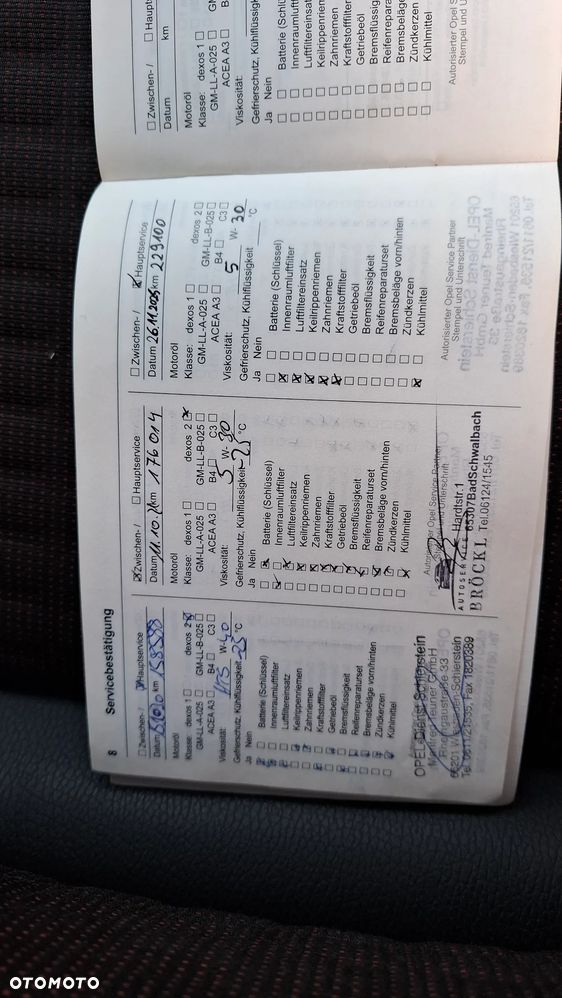 8
Servicebestätigung
Zwischen- / Hauptservice
Datum km 158388
Motoröl
Klasse: dexos 1 dexos 2
GM-LL-A-025 GM-LL-B-025
ACEA A3 B4 C3
Viskosität: W-
Gefrierschutz, Kühlflüssigkeit -25 °C
Ja Nein
Batterie (Schlüssel)
Innenraumluftfilter
Luftfiltereinsatz
Keilrippenriemen
Zahnriemen
Kraftstofffilter
Getriebeöl
Bremsflüssigkeit
Reifenreparaturset
Bremsbeläge vorn/hinten
Zündkerzen
Kühlmittel
OPEL-Dienst Schierstein
GmbH
Rheingaustraße 33
65201 Schierstein
Tel. 0611/21535, Fax 1820389
Zwischen- / Hauptservice
Datum 11.10. km 176014
Motoröl
Klasse: dexos 1 dexos 2
GM-LL-A-025 GM-LL-B-025
ACEA A3 B4 C3
Viskosität: 5 W- 30
Gefrierschutz, Kühlflüssigkeit -25 °C
Ja Nein
Batterie (Schlüssel)
Innenraumluftfilter
Luftfiltereinsatz
Keilrippenriemen
Zahnriemen
Kraftstofffilter
Getriebeöl
Bremsflüssigkeit
Reifenreparaturset
Bremsbeläge vorn/hinten
Zündkerzen
Kühlmittel
Autorisierter Opel Service Partner
Unterschrift
Hardtstr.1
AUTOSERVICE 65307BadSchwalbach
BRÖCKL Tel.06124/1545
Zwischen- / Hauptservice
Datum 26.11. km 229100
Motoröl
Klasse: dexos 1 dexos 2
GM-LL-A-025 GM-LL-B-025
ACEA A3 B4 C3
Viskosität: 5 W- 30
Gefrierschutz, Kühlflüssigkeit °C
Ja Nein
Batterie (Schlüssel)
Innenraumluftfilter
Luftfiltereinsatz
Keilrippenriemen
Zahnriemen
Kraftstofffilter
Getriebeöl
Bremsflüssigkeit
Reifenreparaturset
Bremsbeläge vorn/hinten
Zündkerzen
Kühlmittel
Autorisierter Opel Service Partner
Stempel und Unterschrift
Zwischen- / Haupt
Datum km
Motoröl
Klasse: dexos 1
GM-LL-A-025
ACEA A3
Viskosität:
Gefrierschutz, Kühlflüssig
Ja Nein
Batterie (Schlüssel
Innenraumluftfilter
Luftfiltereinsatz
Keilrippenriemen
Zahnriemen
Kraftstofffilter
Getriebeöl
Bremsflüssig
Reifenrepara
Bremsbeläg
Zündkerzen
Kühlmittel
Autorisierter Opel S
Stempel und U
OTOMOTO